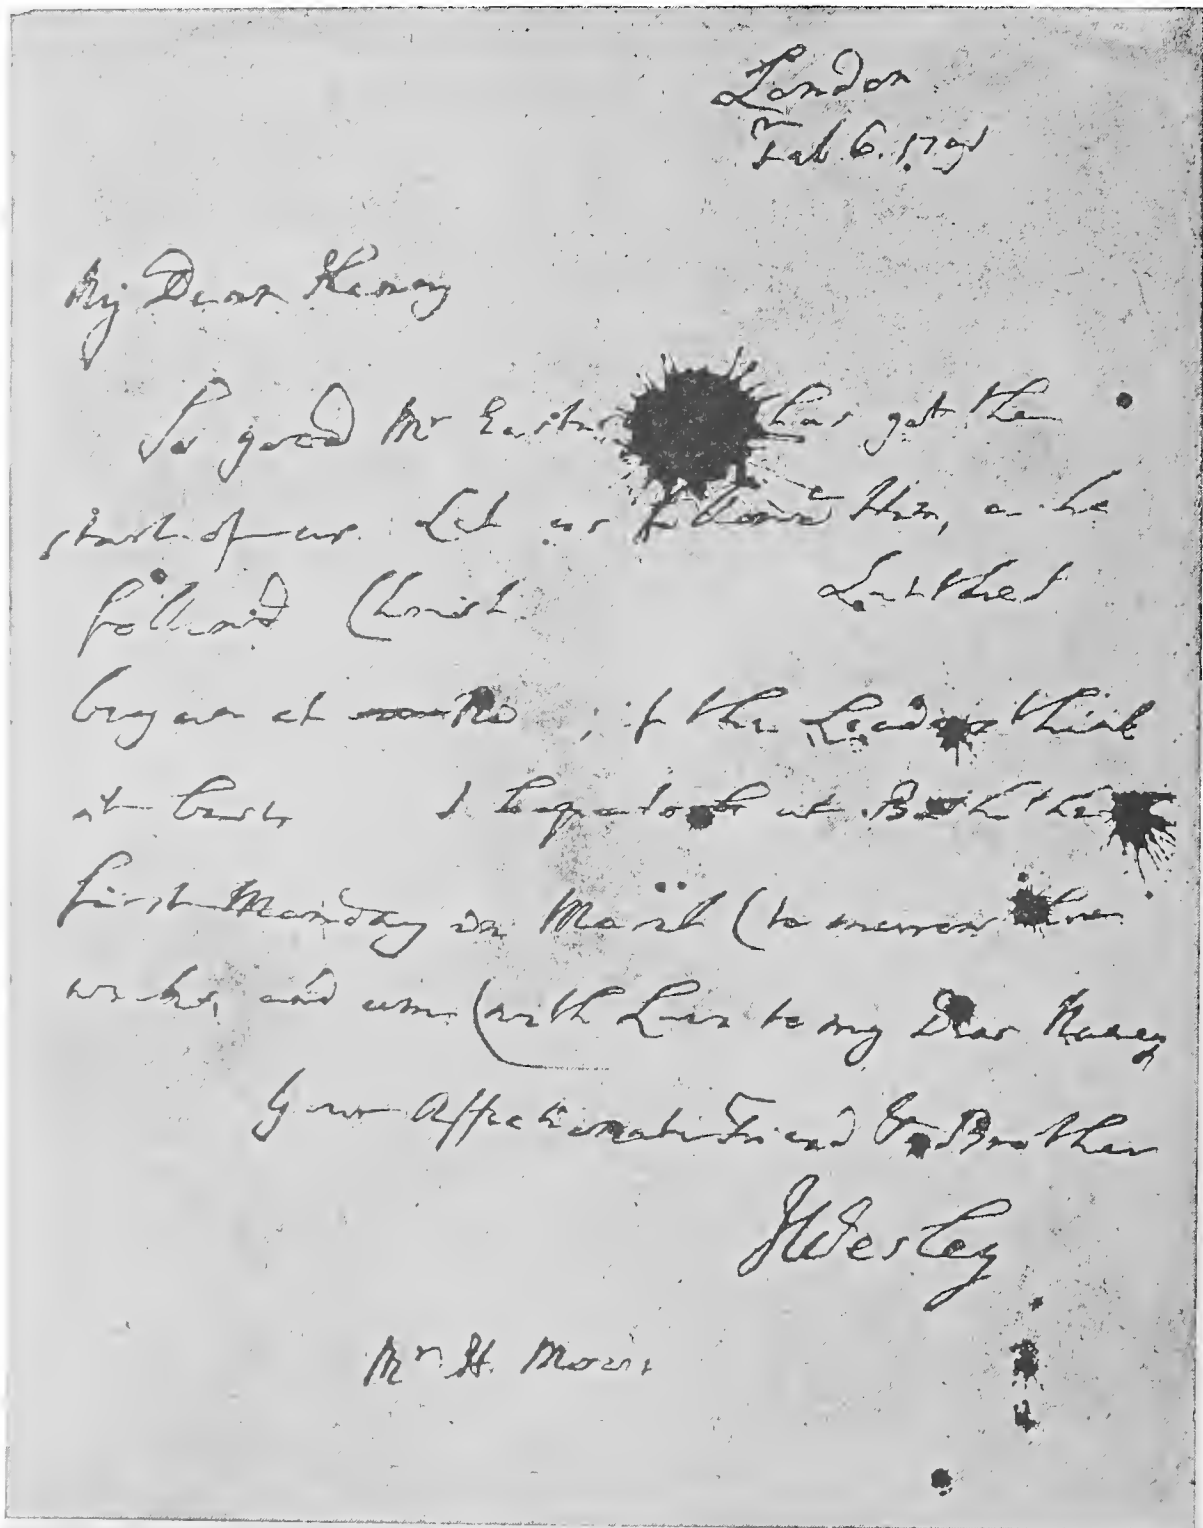 London
Feb 6. 1791
My Dear Henry
So good Mr Easter has got the
start of us. Let us follow Him, as he
follow'd Christ. Let the
began at ; if the Leaders think
it best. I hope to be at Bath the
first Monday in March (to morrow three
weeks, and am (with Love to my Dear Nancy
Your Affectionate Friend & Brother
JWesley
Mr H. Moore